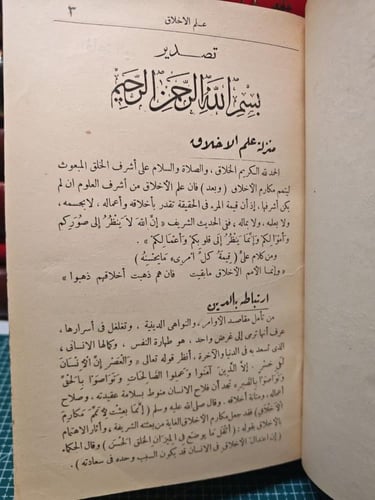 علم الاخلاق ٣
تصدير
بسم الله الرحمن الرحيم
منزلة علم الاخلاق
الحمد لله الكريم الخلاق، والصلاة والسلام على أشرف الخلق المبعوث
ليتمم مكارم الاخلاق (وبعد) فان علم الاخلاق من أشرف العلوم ان لم
يكن أشرفها، إذ أن قيمة المرء في الحقيقة تقدر بأخلاقه وأعماله، لابجسمه،
ولا بعلمه، ولا بماله، ففي الحديث الشريف «إنَّ اللهَ لاَ يَنظُرُ إلى صُوَرِكم
وأموَالِكم وَإنَّما يَنظُرُ إلى قلُوبكمْ وَأعْمَالكمْ».
ومن كلام علىّ (قيمَةُ كلِّ امْرِىءٍ مَايُحْسِنُهُ)
«وإنما الأمم الأخلاق مابقيت فان هم ذهبت أخلاقهم ذهبوا»
ارتباطه بالدين
من تأمل مقاصد الأوامر، والنواهى الدينية، وتغلغل فى أسرارها،
عرف أنها ترمى إلى غرض واحد، هو طهارة النفس، وكمالها الانسانى،
الذى تسعد به فى الدنيا والآخرة، انظر قوله تعالى «وَالْعَصْرِ إنَّ الاِ نْسَانَ
لَفِى خُسْرٍ، إلاَّ الَّذِينَ آمَنُوا وَعَمِلُوا الصَّالِحَاتِ وَتَوَاصَوْا بِالْحَقِّ
وَتَوَاصَوْا بِالصَّبْرِ» تجد أن فلاح الانسان منوط بسلامة عقيدته، وصلاح
أعماله، ومتانة أخلاقه. وقال صلى الله عليه وسلم (إنَّما بُعِثْتُ لاُ تَمِّمَ مَكَارِمَ
الأخْلاَقِ) فقد جعل مكارم الاخلاق الغاية من بعثته الشريفة، وأثار الاهتمام
بالاخلاق بقوله: (أثقَلُ مَا يوضَع فى المِيزَان الخلق الحَسَنُ) وقال الحكماء
(إن اعتدال الاخلاق فى الانسان قد يكون السبب وحده فى سعادته).